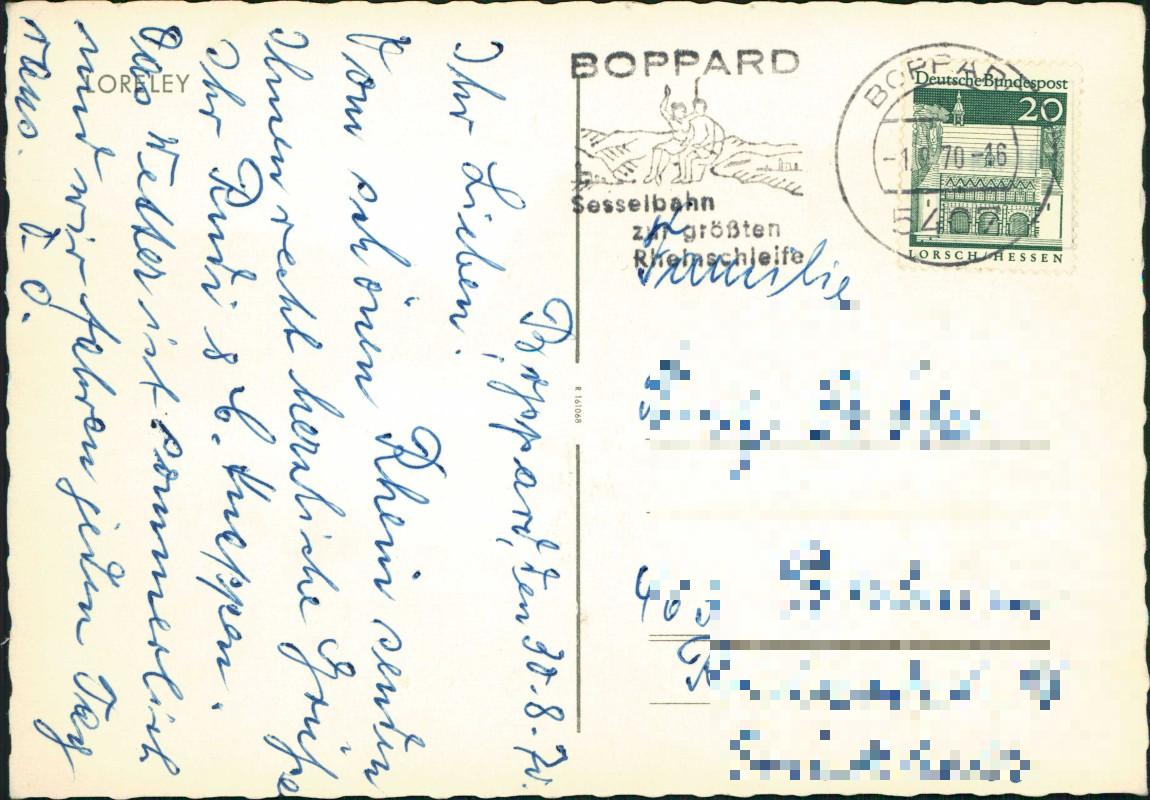 LORELEY
Boppard, den 30.8.70.
Ihr Lieben!
Vom schönen Rhein senden
Ihnen recht herzliche Grüße
Ihr Rudi &
Das Wetter ist sommerlich
und wir fahren jeden Tag
raus.
R 161068
BOPPARD
Sesselbahn
zur größten
Rheinschleife
BOPPARD
-1.9.70-16
5407
Deutsche Bundespost
20
LORSCH/HESSEN
Familie